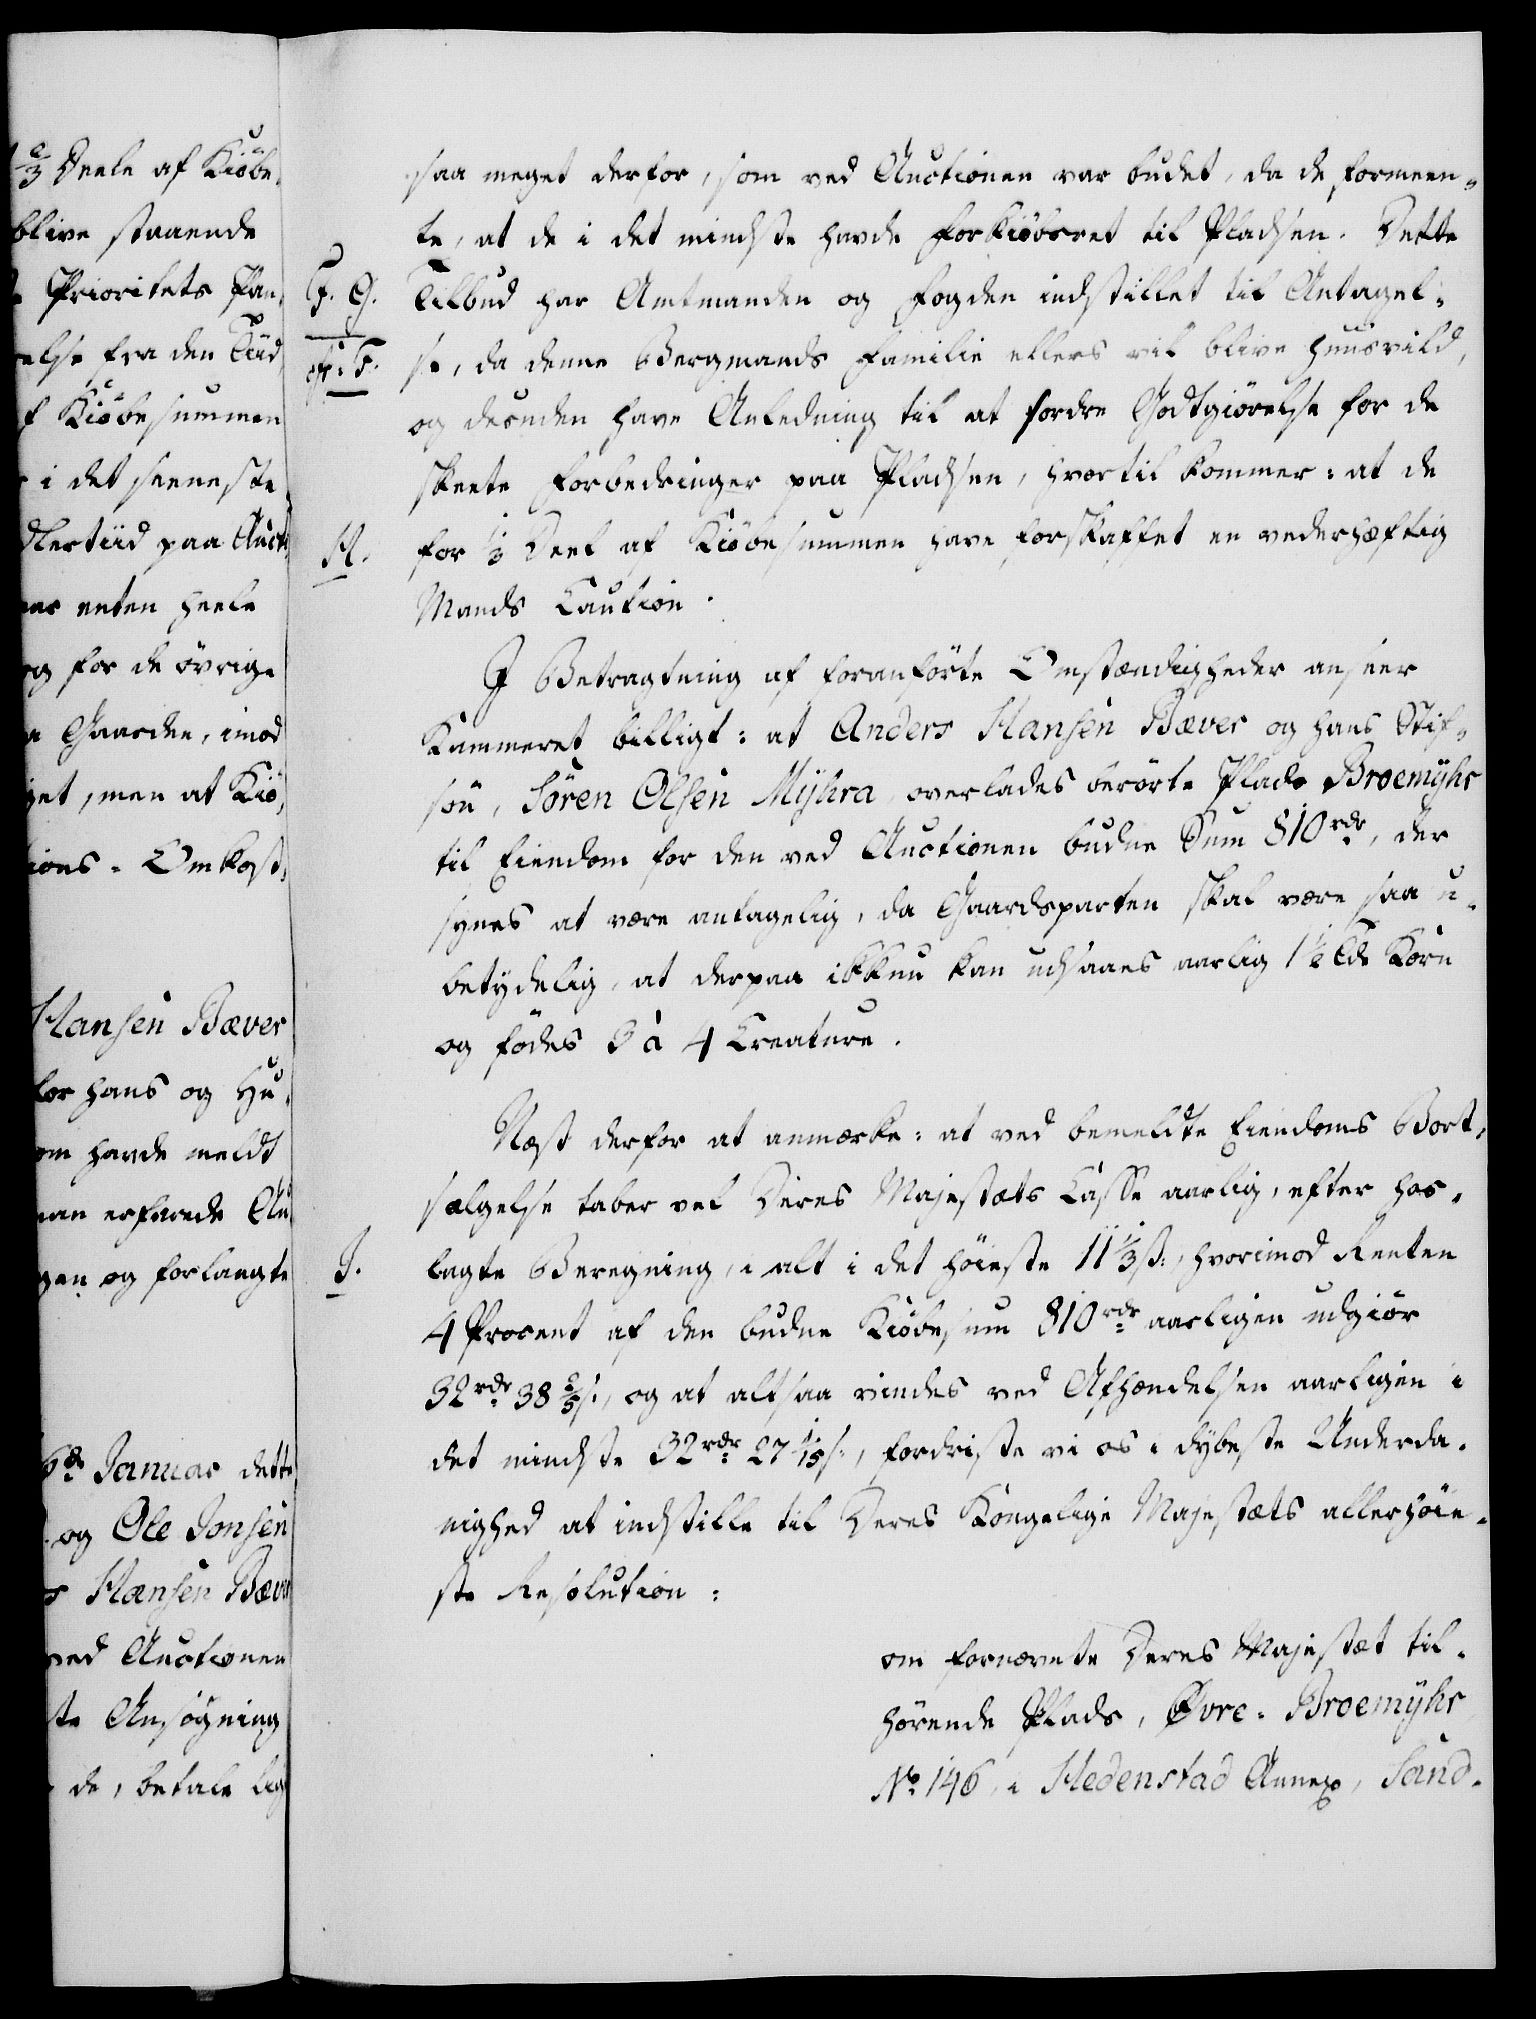 2/3 Deele af Kiöbe-
blive staaende
Prioritets Pan-
else fra den Tiid
Kiöbesummen
i det seeneste
dlertiid paa Auct
enten heele
og for de övrige
Gaarden, imod
get, men at Kiö-
ions-Omkost-
Hansen Bæver
for hans og Hu-
om havde meldt
man erfarede Au
gen og forlangte
6de Januar dette
og Ole Jonsen
s Hansen Bæver
ved Auctionen
te Ansögning
de, betale lig
saa meget derfor, som ved Auctionen var budet, da de formeen-
te, at de i det mindste havde Forkiöbsret til Pladsen. Dette
F. G. Tilbud har Amtmanden og Fogden indstillet til Antagel-
cfr: F. se, da denne Bergmands Familie ellers vil blive huusvild,
og desuden have Anledning til at fordre Godtgiörelse for de
skeete Forbedringer paa Pladsen, hvortil kommer: at de
H. for 1/3 Deel af Kiöbesummen have forskaffet en vederhæftig
Mands Caution.
I Betragtning af foranförte Omstændigheder anseer
Kammeret billigt: at Anders Hansen Bæver og hans Stif-
sön, Sören Olsen Myhra overlades berörte Plads Broemyhr
til Eiendom for den ved Auctionen budne Sum 810 rdr, der
synes at være antagelig, da Gaardsparten skal være saa u-
betydelig, at derpaa ikkun kan udsaaes aarlig 1 1/2 Tde Korn
og födes 3 à 4 Creature.
Næst derfor at anmærke: at ved bemeldte Eiendoms Bort-
sælgelse taber vel Deres Majestæts Casse aarlig, efter hos-
I. lagte Beregning, i alt i det höieste 11 1/3 ß:, hvorimod Renten
4 Procent af den budne Kiöbesum 810 rdr aarligen udgiör
32 rdr 38 2/5 s:, og at altsaa vindes ved Afhændelsen aarligen i
det mindste 32 rdr 27 1/15 s:, fordriste vi os i dybeste Underda-
nighed at indstille til Deres Kongelige Majestæts allerhöie-
ste Resolution:
om fornævnte Deres Majestæt til-
hörende Plads, Øvre-Broemyhr
No 146, i Hedenstad Annex, Sand-